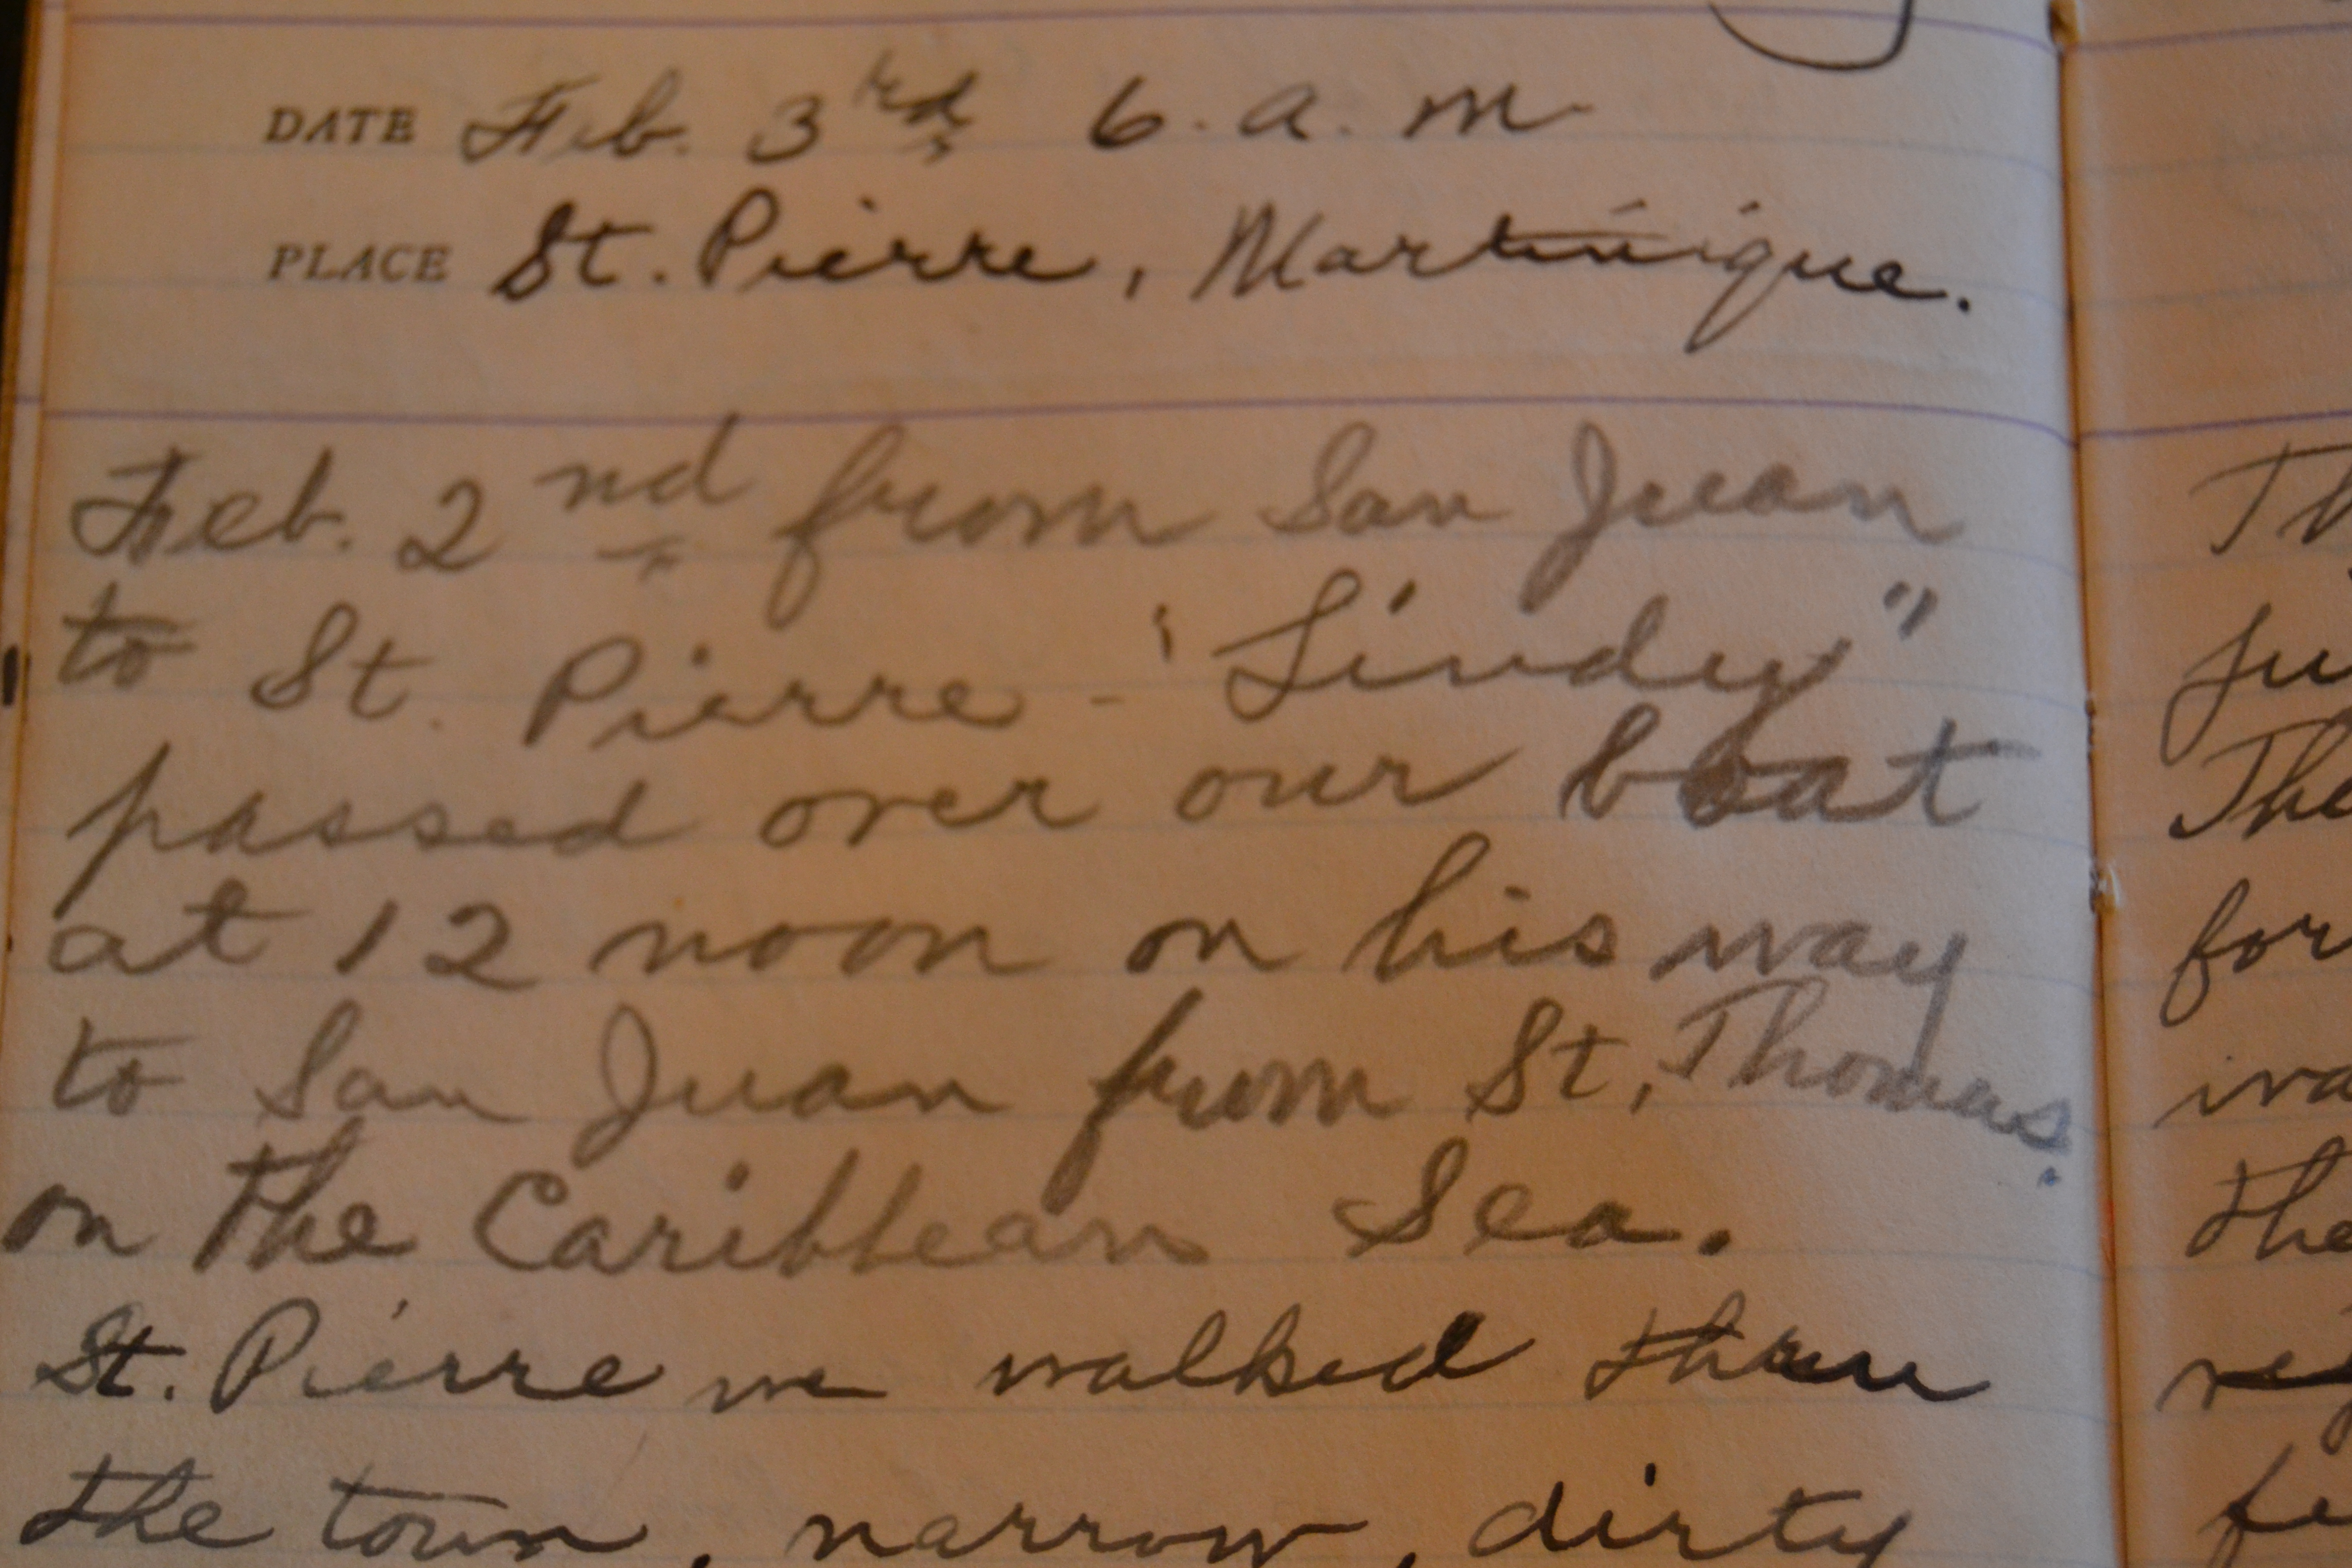 DATE Feb. 3rd 6. a. m
PLACE St. Pierre, Martinique.
Feb. 2nd from San Juan
to St. Pierre - "Lindy"
passed over our boat
at 12 noon on his way
to San Juan from St. Thomas.
on the Caribbean Sea.
St. Pierre we walked thru
the town, narrow, dirty
Th
ju
Tho
for
wa
the